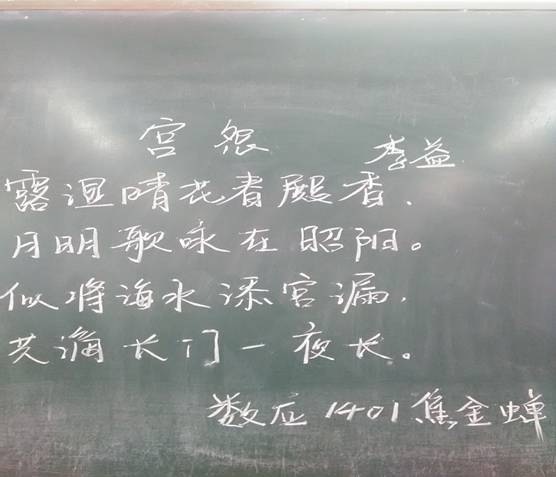 宫怨
李益
露湿晴花春殿香，
月明歌咏在昭阳。
似将海水添宫漏，
共滴长门一夜长。
数应1401焦金蝉